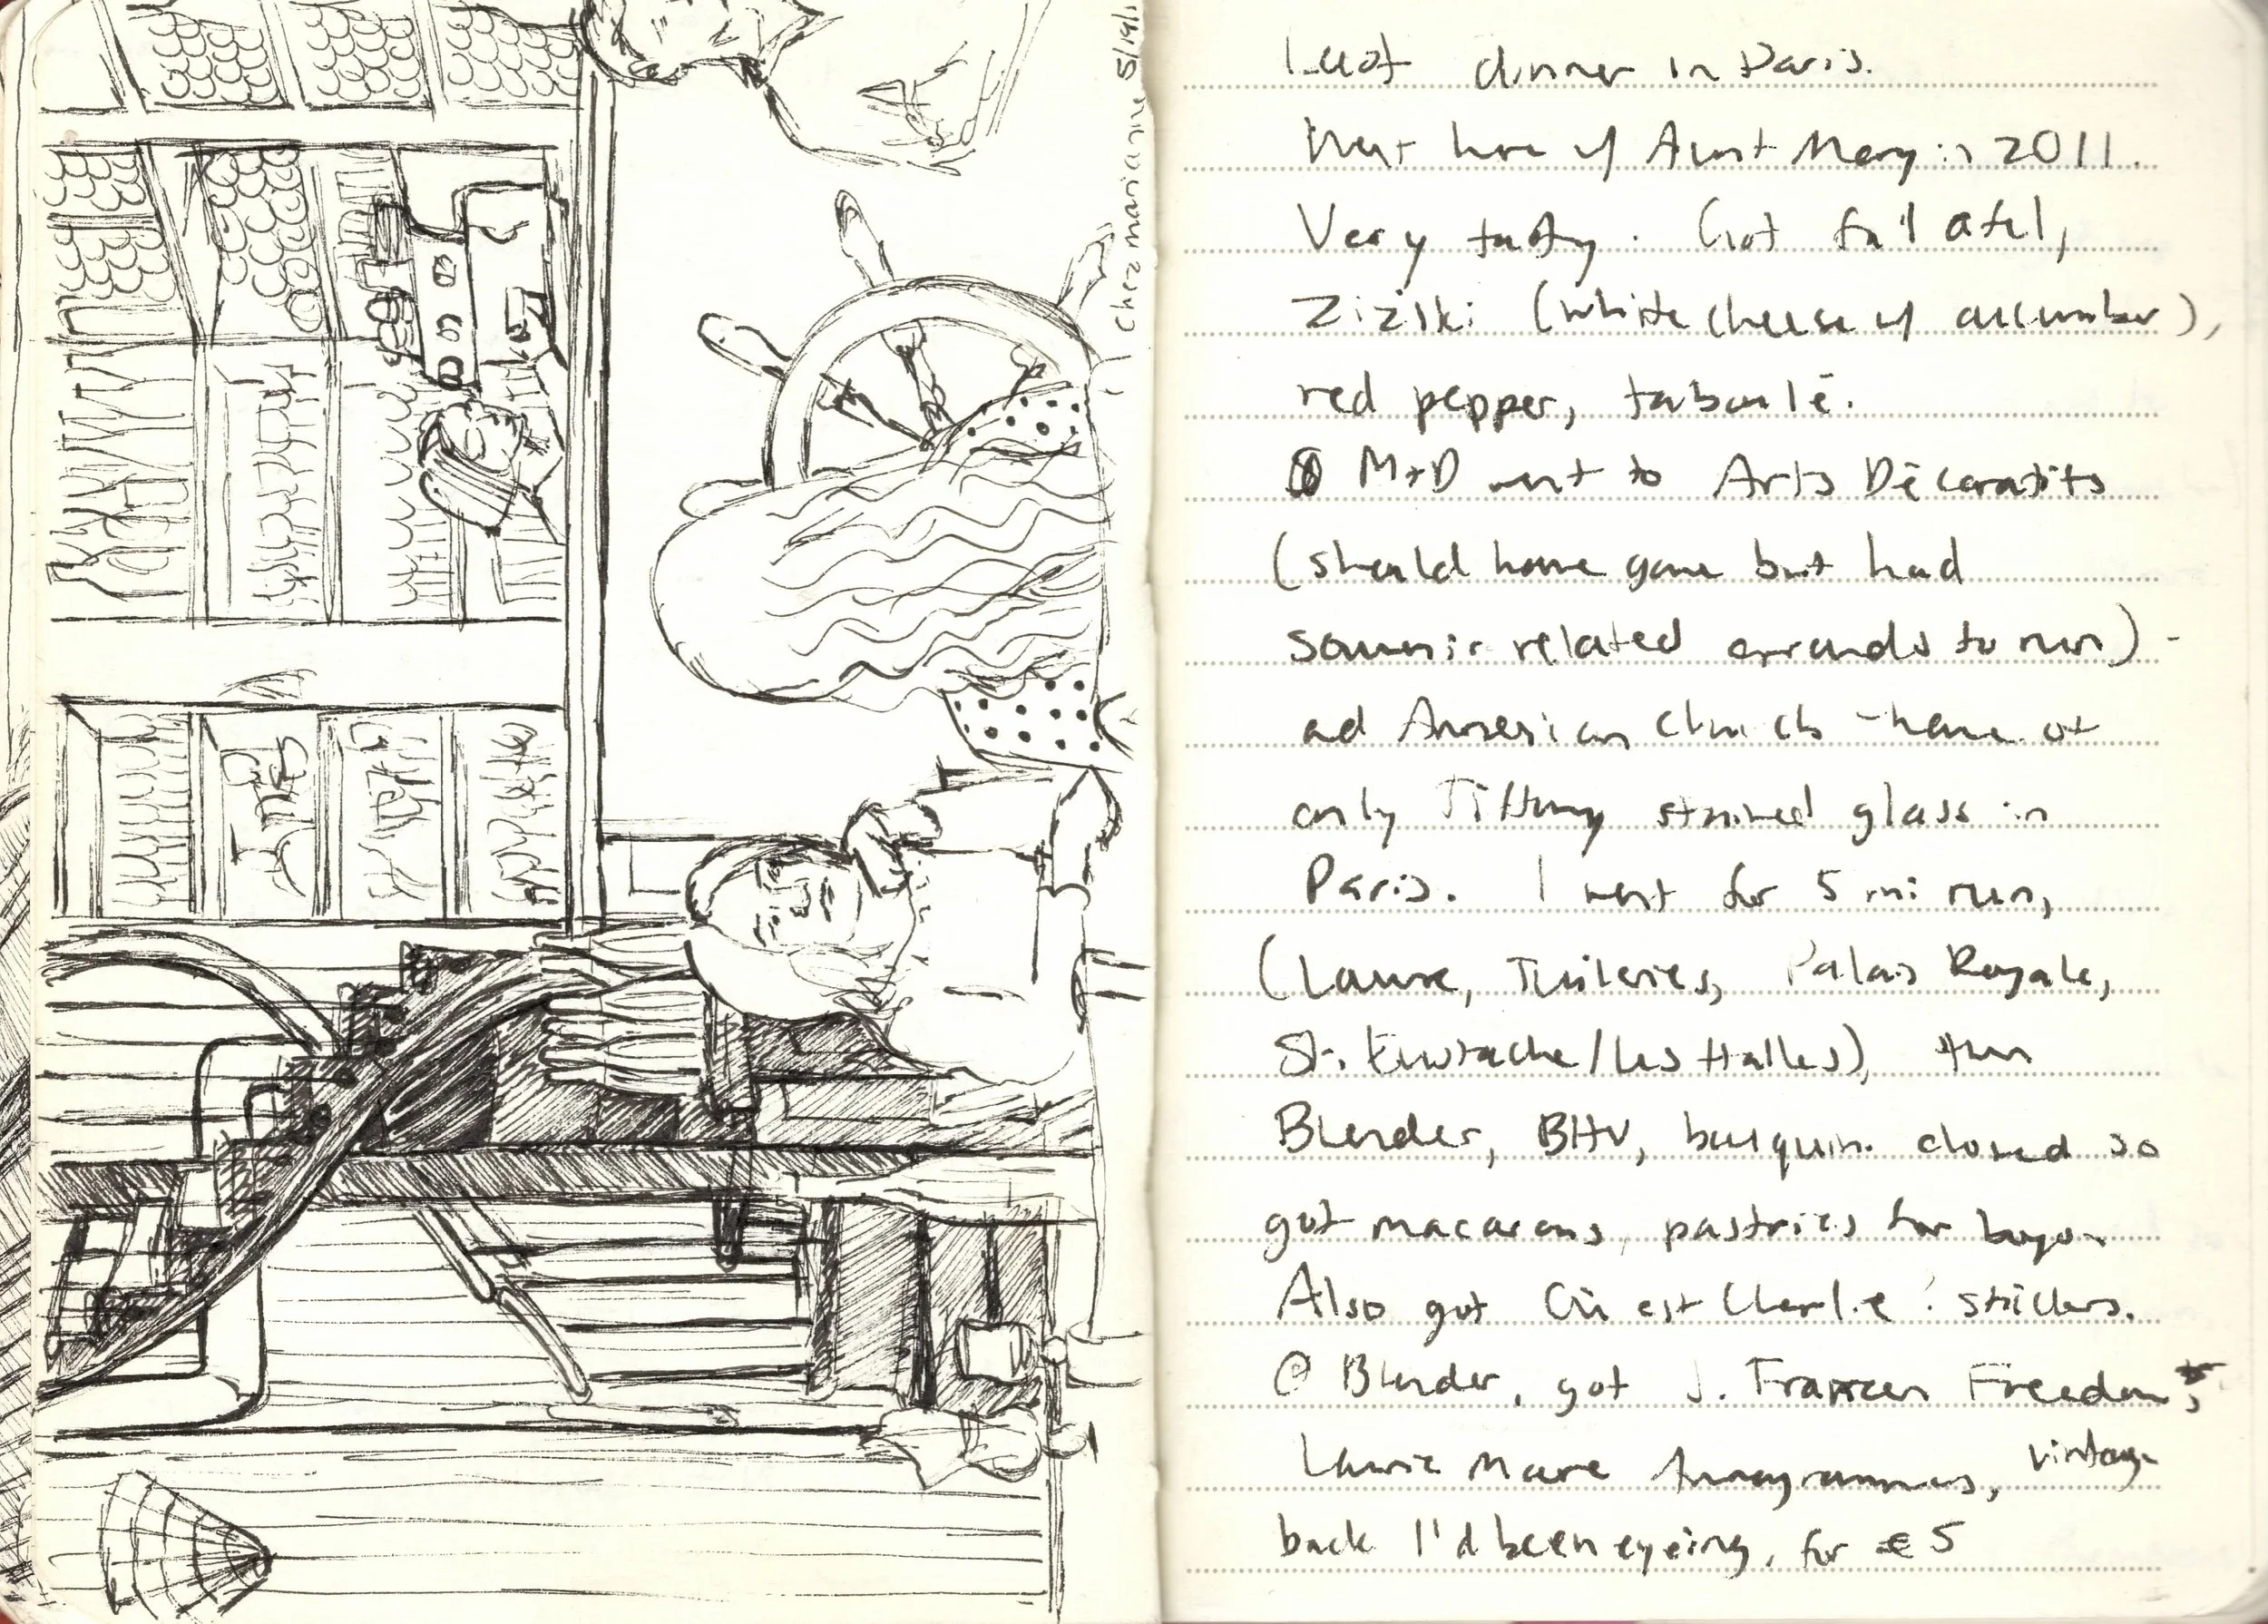 Chez marianne 5/19/1
Last dinner in Paris.
Went here w/ Aunt Mary in 2011.
Very tasty. Got falafel,
Ziziki (white cheese w/ cucumber),
red pepper, taboulé.
M+D went to Arts Décoratifs
(should have gone but had
souvenir related errands to run) -
and American Church - home of
only Tiffany stained glass in
Paris. I went for 5 mi run,
(Louvre, Tuileries, Palais Royale,
St. Eustache/Les Halles), then
Blender, BHV, closed so
got macarons, pastries for
Also got Où est Charlie? stickers.
@ Blender, got J. Franzen Freedom,
Laurie Moore Anagrammes, vintage
back I'd been eyeing, for € 5